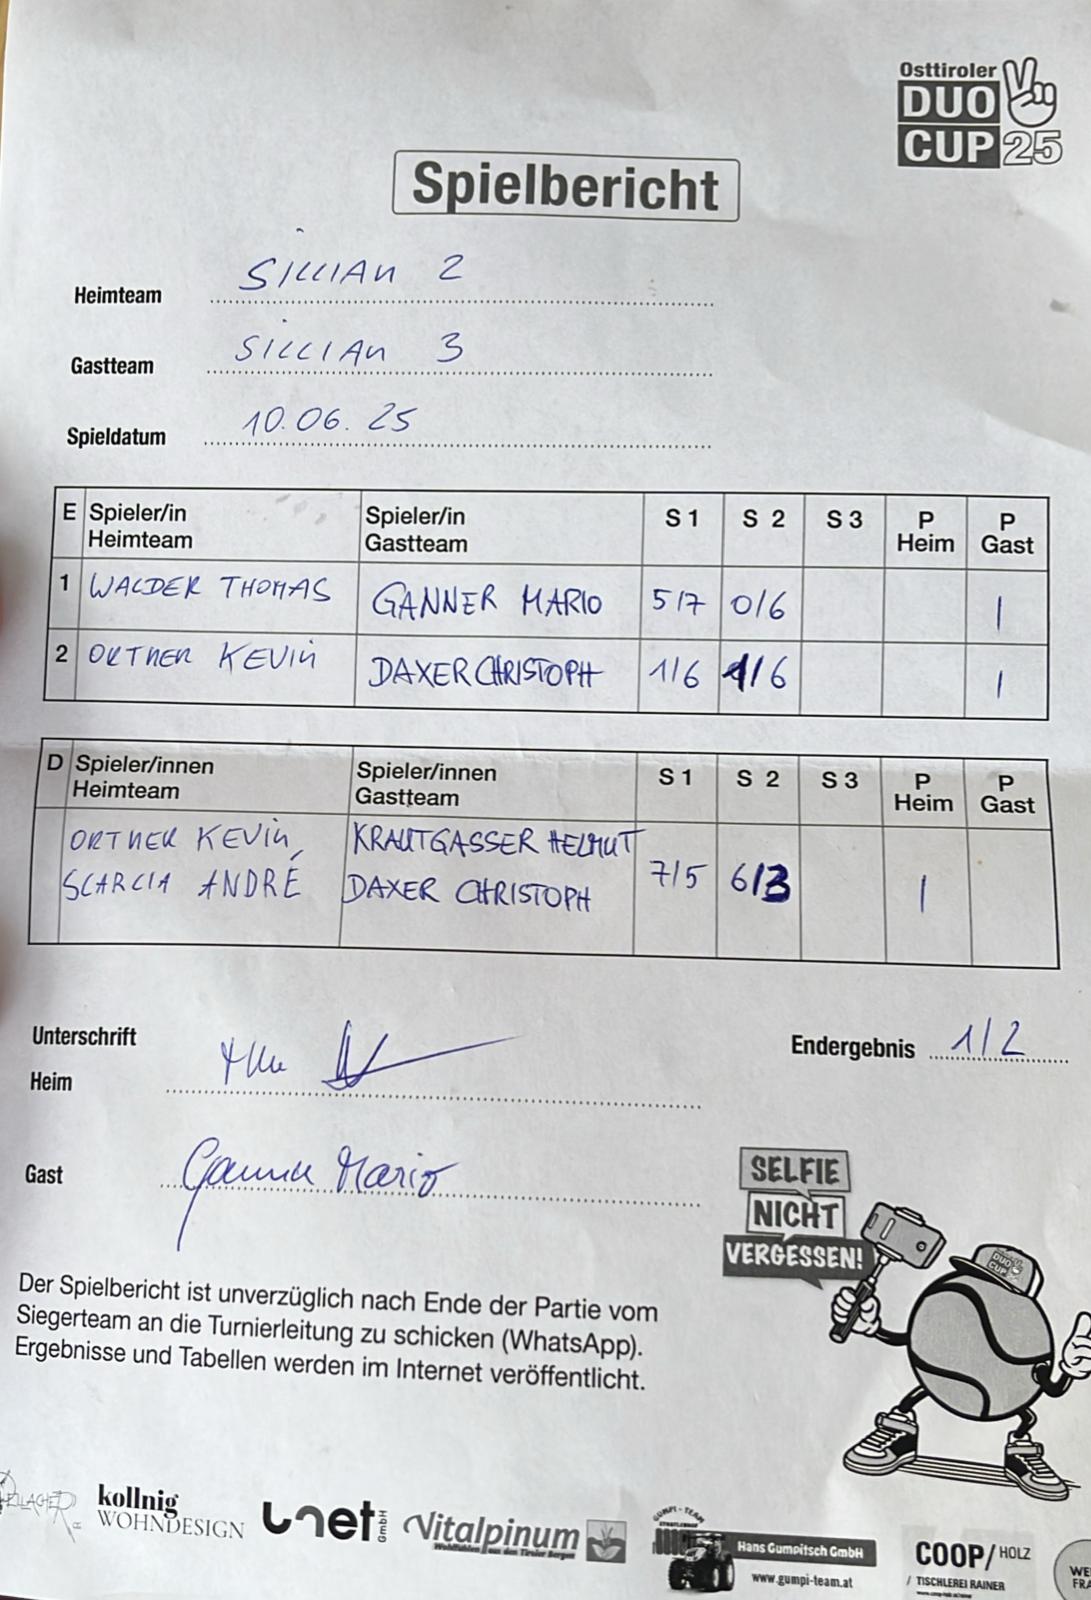 Osttiroler
DUO
CUP 25
Spielbericht
Heimteam SILLIAN 2
Gastteam SILLIAN 3
Spieldatum 10.06.25
E Spieler/in Heimteam Spieler/in Gastteam S 1 S 2 S 3 P Heim P Gast
1 WALDER THOMAS GANNER MARIO 5/7 0/6 1
2 ORTNER KEVIN DAXER CHRISTOPH 1/6 1/6 1
D Spieler/innen Heimteam Spieler/innen Gastteam S 1 S 2 S 3 P Heim P Gast
ORTNER KEVIN, KRAUTGASSER HELMUT
SCARCIA ANDRÉ DAXER CHRISTOPH 7/5 6/3 1
Unterschrift
Heim
Endergebnis 1/2
Gast Ganner Mario
SELFIE
NICHT
VERGESSEN!
DUO
CUP
Der Spielbericht ist unverzüglich nach Ende der Partie vom
Siegerteam an die Turnierleitung zu schicken (WhatsApp).
Ergebnisse und Tabellen werden im Internet veröffentlicht.
kollnig
WOHNDESIGN
unet GmbH
Vitalpinum
Wohlfühlen aus den Tiroler Bergen
GUMPI-TEAM
Hans Gumpitsch GmbH
www.gumpi-team.at
COOP/HOLZ
/ TISCHLEREI RAINER